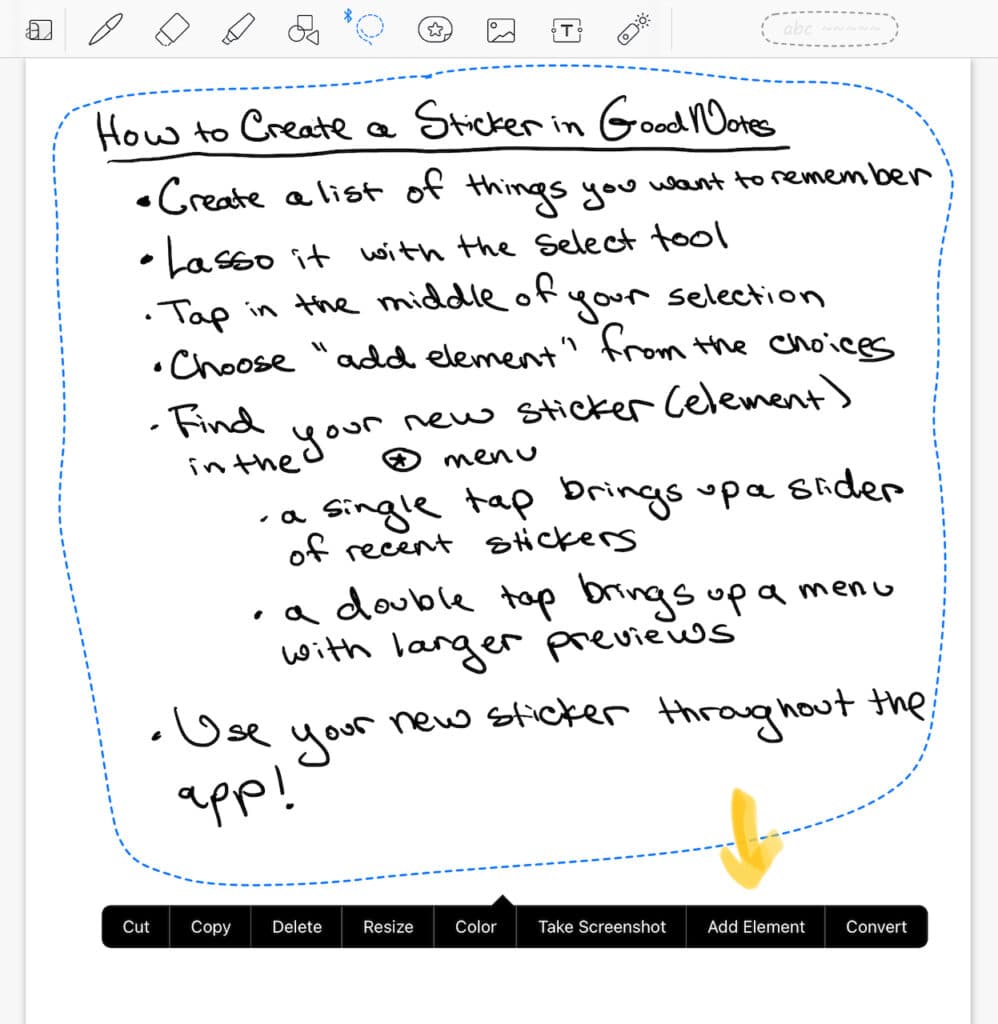 abc
How to Create a Sticker in GoodNotes
• Create a list of things you want to remember
• Lasso it with the select tool
• Tap in the middle of your selection
• Choose "add element" from the choices
• Find your new sticker (element)
in the menu
• a single tap brings up a slider
of recent stickers
• a double tap brings up a menu
with larger previews
• Use your new sticker throughout the
app!
Cut Copy Delete Resize Color Take Screenshot Add Element Convert